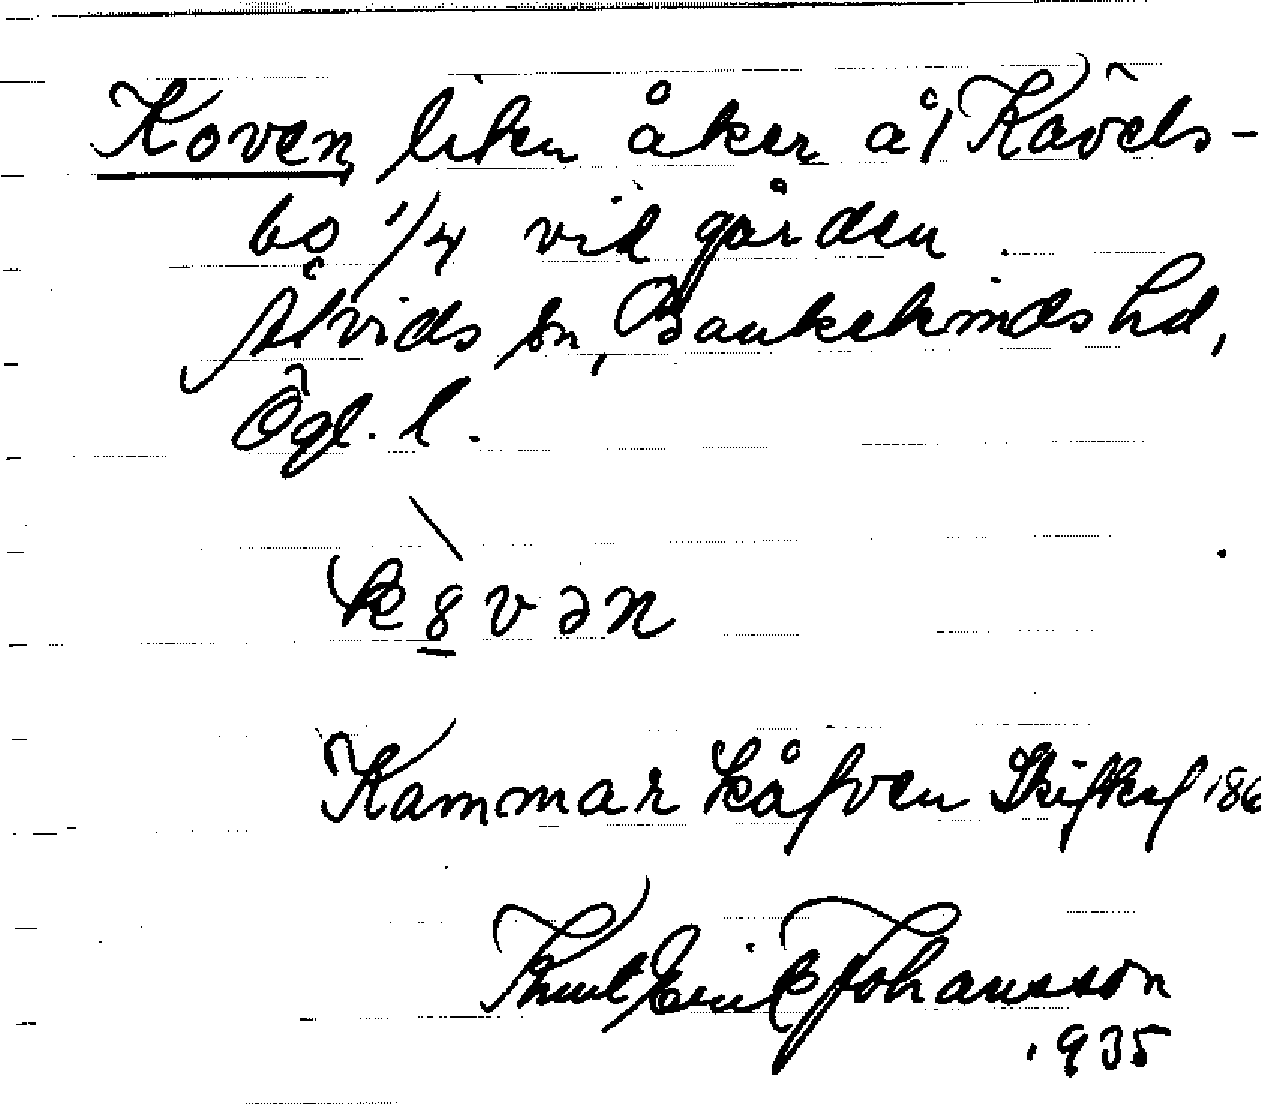 Koven, liten åker å Kävels-
bo 1/4 vid gården
Åtvids sn, Bankekinds hd,
Ögl. l.
k8vən
Kammar kåfven Skifkf 186
Knut Erik Johansson
1935